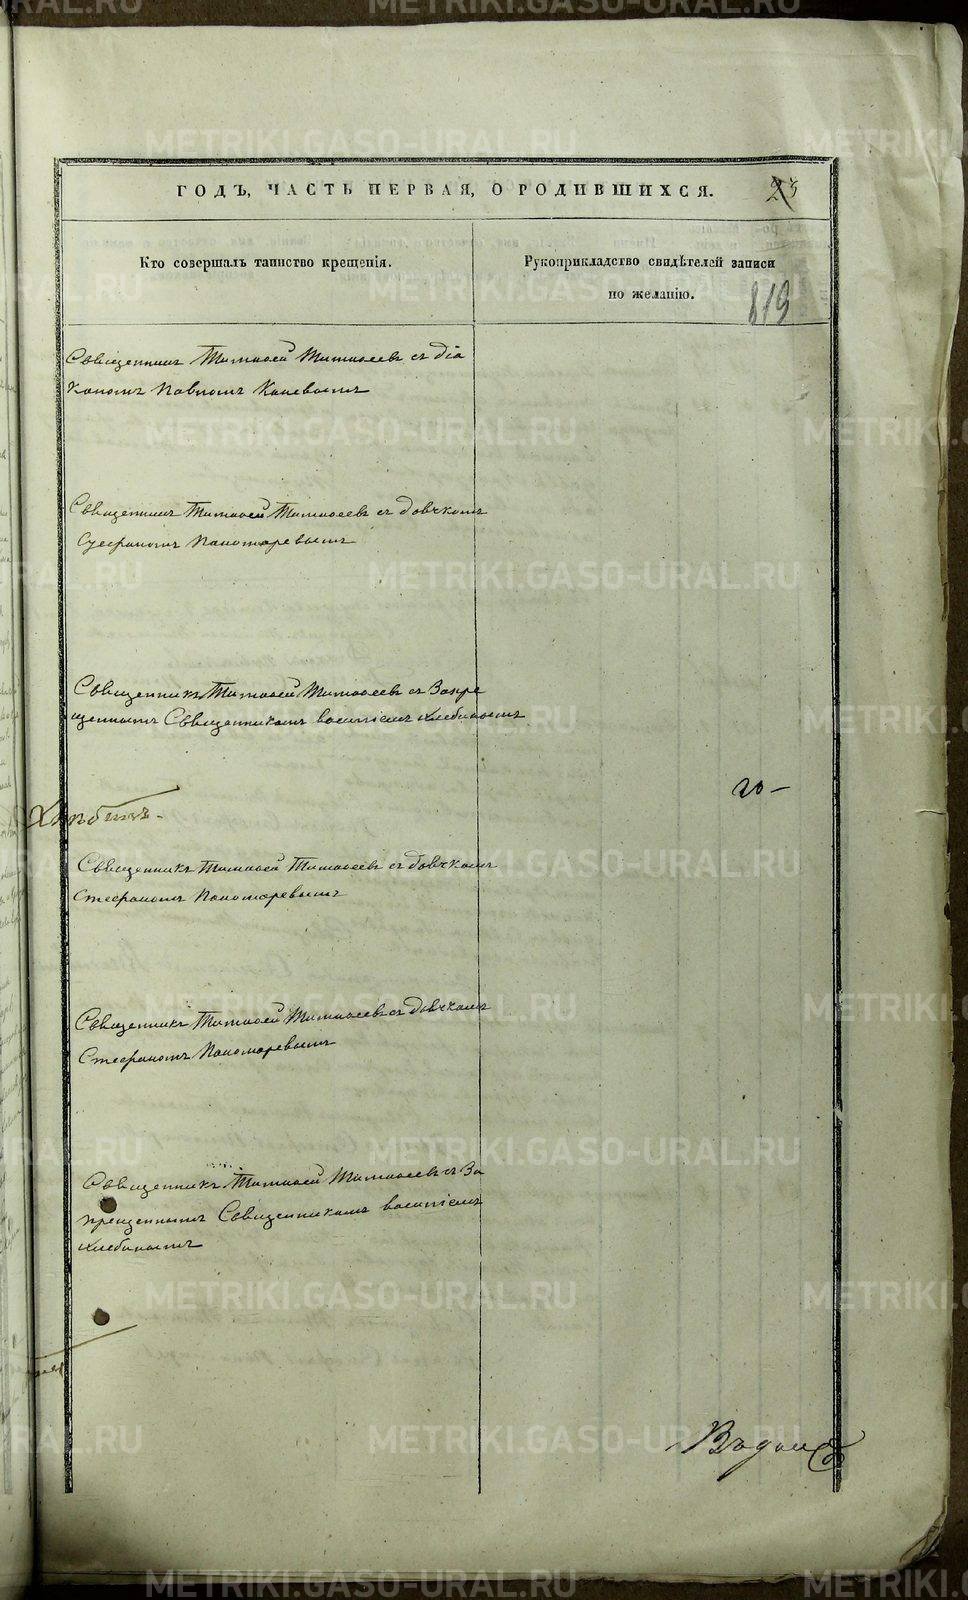 ГОДЪ, ЧАСТЬ ПЕРВАЯ, О РОДИВШИХСЯ.
23
Кто совершалъ таинство крещенія.
Рукоприкладство свидѣтелей записи
по желанію.
819
Священникъ Тимоѳей Тимоѳеевъ съ діа
кономъ Павломъ
Священникъ Тимоѳей Тимоѳеевъ съ дьячкомъ
Стефаномъ Пономаревымъ
Священникъ Тимоѳей Тимоѳеевъ съ Запре
щеннымъ Священникомъ Хлебинымъ
20
Священникъ Тимоѳей Тимоѳеевъ съ дьячкомъ
Стефаномъ Пономаревымъ
Священникъ Тимоѳей Тимоѳеевъ съ дьячкомъ
Стефаномъ Пономаревымъ
Священникъ Тимоѳей Тимоѳеевъ съ За
прещеннымъ Священникомъ
Хлебинымъ
METRIKI.GASO-URAL.RU